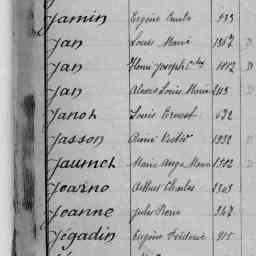 Jamin Eugène Emile 933
Jan Louis Marie
Jan Henri Joseph
Jan Alexis Louis Marie
Janoh Louis Ernest 672
Jasson Aimé Victor 1932
Jaumet Marie Ange Marie 1502 D
Jearno Arthur Charles
Jeanne Jules Pierre 347
Jégadin Eugène Frédéric 915